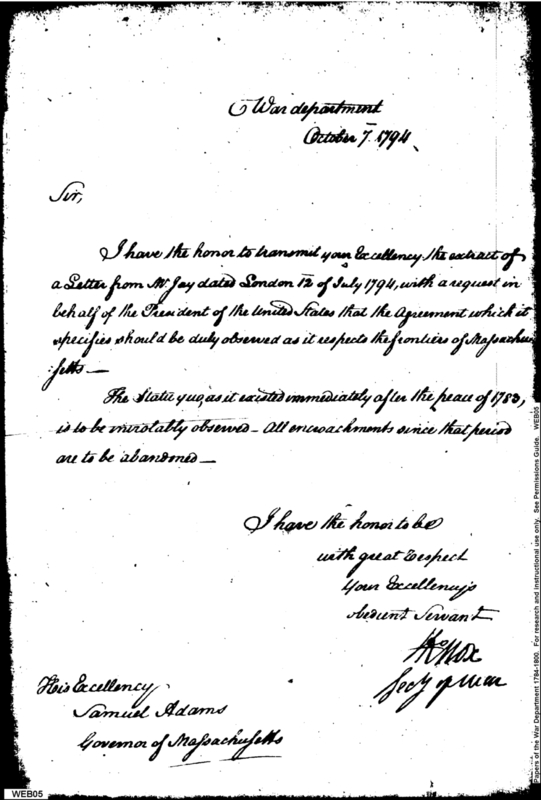 War department
October 7. 1794
Sir,
I have the honor to transmit your Excellency the extract of
a Letter from Mr. Jay dated London 12 of July 1794, with a request in
behalf of the President of the United States that the Agreement which it
specifies should be duly observed as it respects the frontiers of Massachu
setts —
The Statu quo, as it existed immediately after the peace of 1783,
is to be inviolably observed — All encroachments since that period
are to be abandoned —
I have the honor to be
with great Respect
Your Excellency's
obedient Servant
HKnox
Secy of War
His Excellency
Samuel Adams
Governor of Massachusetts
WEB05
Papers of the War Department 1784-1800. For research and instructional use only. See Permissions Guide. WEB05